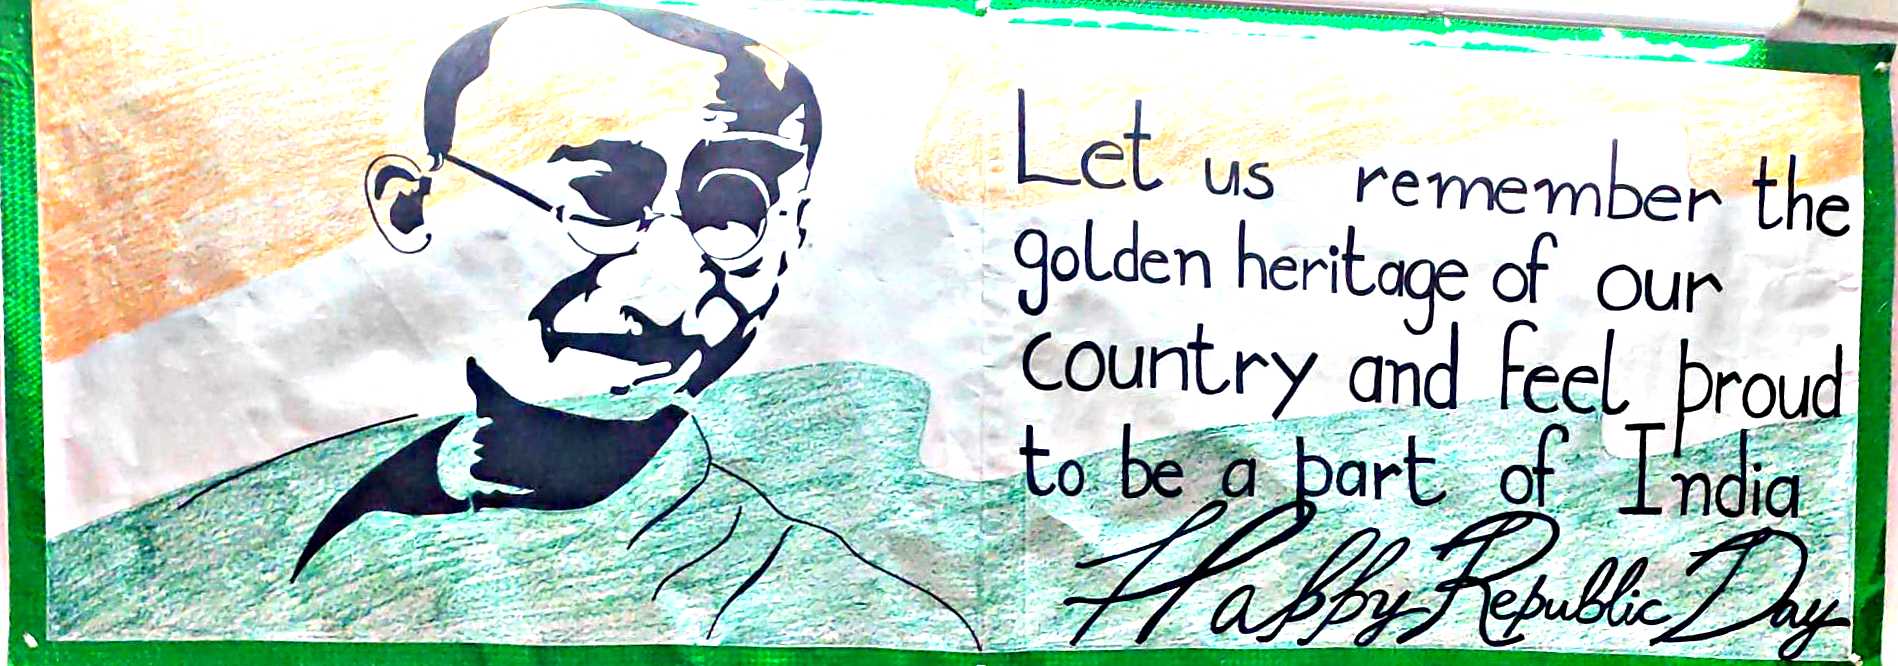 Let us remember the
golden heritage of our
country and feel proud
to be a part of India
Happy Republic Day